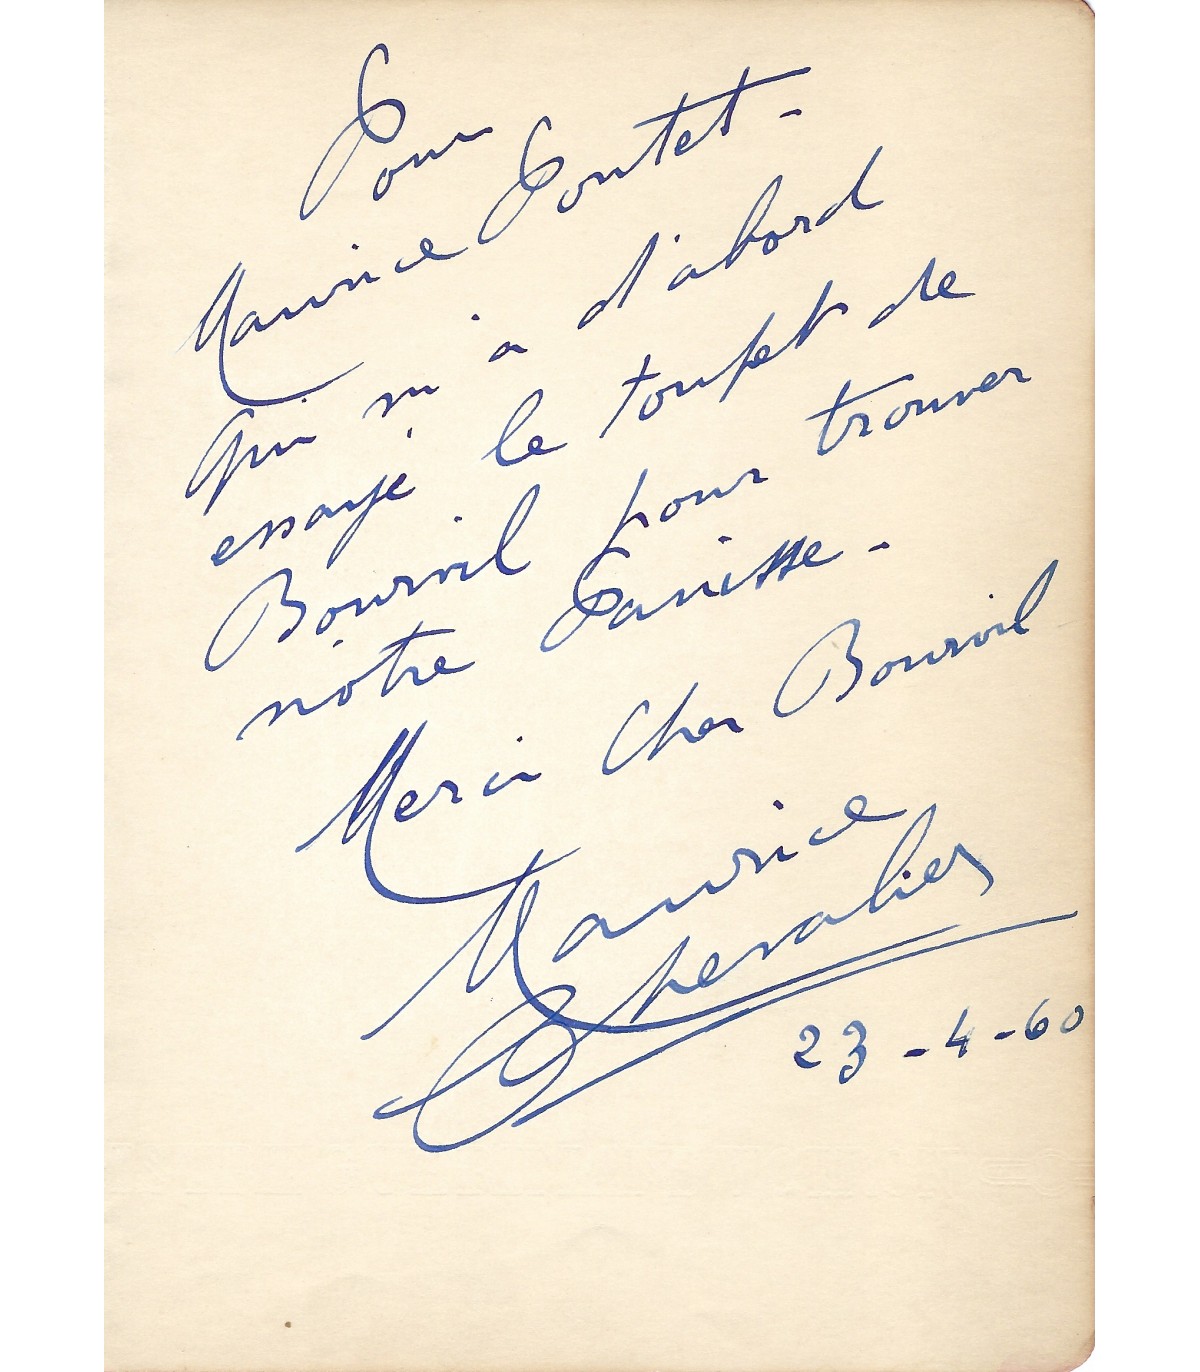 Pour
Maurice Poutet -
qui m'a d'abord
essayé le toupet de
Bourvil pour trouver
nôtre Panisse -
Merci Cher Bourvil
Maurice
Chevalier
23 - 4 - 60